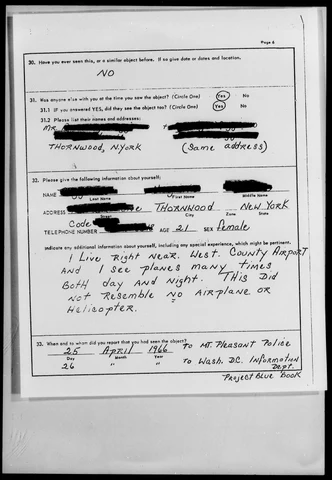 Page 6
30. Have you ever seen this, or a similar object before. If so give date or dates and location.
NO
31. Was anyone else with you at the time you saw the object? (Circle One) Yes No
31.1 If you answered YES, did they see the object too? (Circle One) Yes No
31.2 Please list their names and addresses:
MR
THORNWOOD, N.YORK (Same address)
32. Please give the following information about yourself:
NAME
Last Name First Name Middle Name
ADDRESS THORNWOOD NEW YORK
Street City Zone State
Code
TELEPHONE NUMBER AGE 21 SEX female
Indicate any additional information about yourself, including any special experience, which might be pertinent.
I Live Right Near. West. County Airport
And I see planes many times
Both day and Night. This Did
Not Resemble No Airplane or
Helicopter.
33. When and to whom did you report that you had seen the object?
25 April 1966 To Mt. Pleasant Police
Day Month Year
26 " " To Wash. D.C. Information Dept.
Project Blue Book